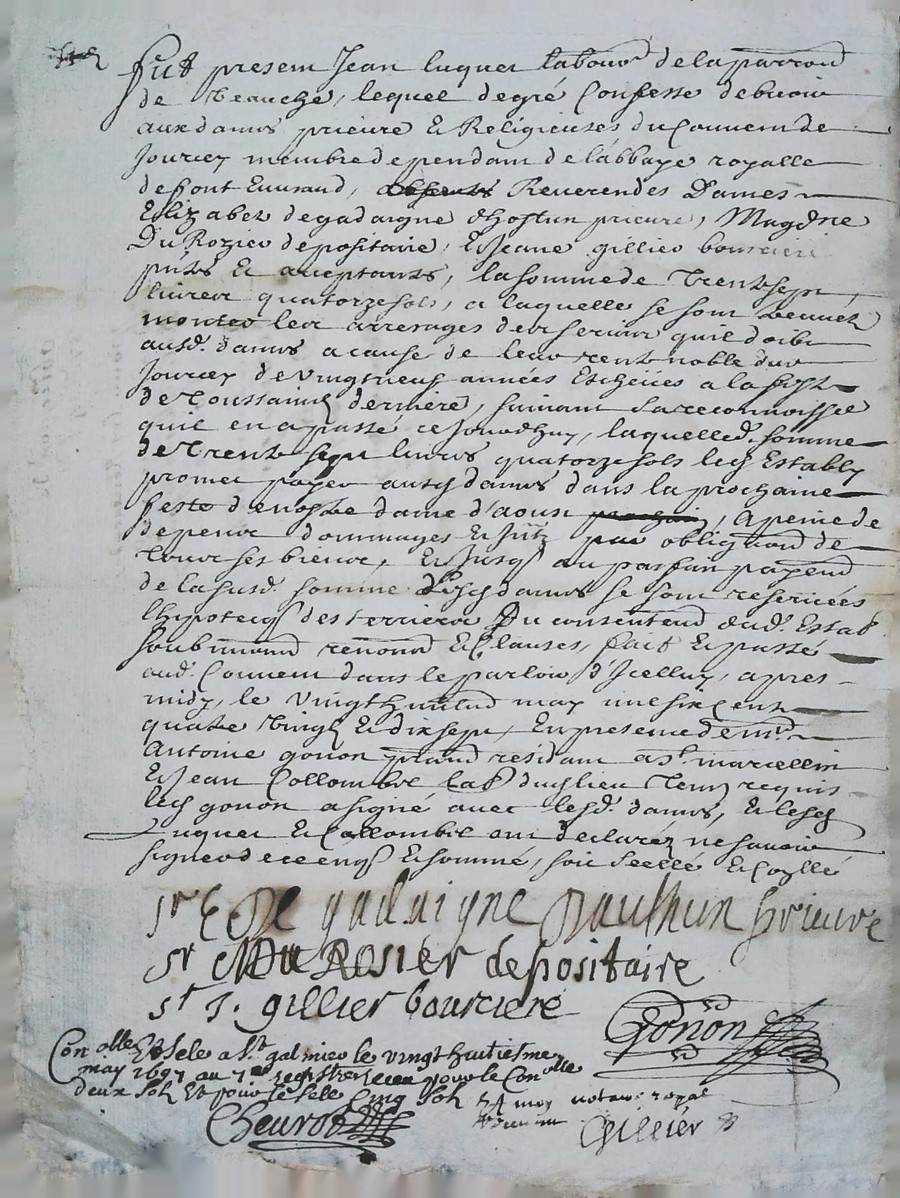 fut presem Jean luquet labour de la parroisse
de Veauche, lequel degré Confesse debvoir
aux dames prieure et Religieuses du Couvem de
Jourcey membre dependam de l'abbaye royalle
de font Evuraud, Reverendes Dames
Elizabet degadaigne dhostun prieure, Magdne
Du Rozier depositaire, et Jeane gillier bourcieri
pntes et acceptantes, la somme de Trente sept
livres quatorze sols, a laquelle se sont
montes les arrerages des servis quil doibt
ausd. dames a cause de leur rente noble dud
Jourcey de vingt neuf années Escheües a la feste
de Toussaincts derniere, suivant sa recconnoissce
quil en a passé ce jourdhuy, laquelled. somme
de Trente sept livres quatorze sols led Estably
promet payer ausd dames dans la prochaine
feste de nostre dame d'aoust, A peine de
depens dommages et par obligaon de
tous ses biens, Et jusqs au parfaict payemt
de la susd. somme Lesd dames se sont reservées
l'hipotecq des terriers Du consentemt dud. Estab
soubmissions renonons et Clauses, fait et passé
aud. Couvent dans le parloir d'Icelluy, apres
midy, le vingt may mil six cent
quatre vingt et dix sept, En presence de mr
Antoine gonon resident a St marcellin
Et Jean Collombet lab dud lieu Tesm requis
led gonon a signé avec lesd. dames, et lesd
Luquet et Collombet ont declaréz ne scavoir
signer de ce enqs et sommé, soit scellé et Collé
sr E De gadaigne Dauthun prieure
sr M Du Rosier depositaire
sr J. gillier bourciere
Gonon
Con olle Et sele a St galmier le vingt huitiesme
may 1697 au 7me registre receu pour le Con olle
deux sols Et pour le sele Cinq sols
Et moy notaire royal
Cheurot
Gillier